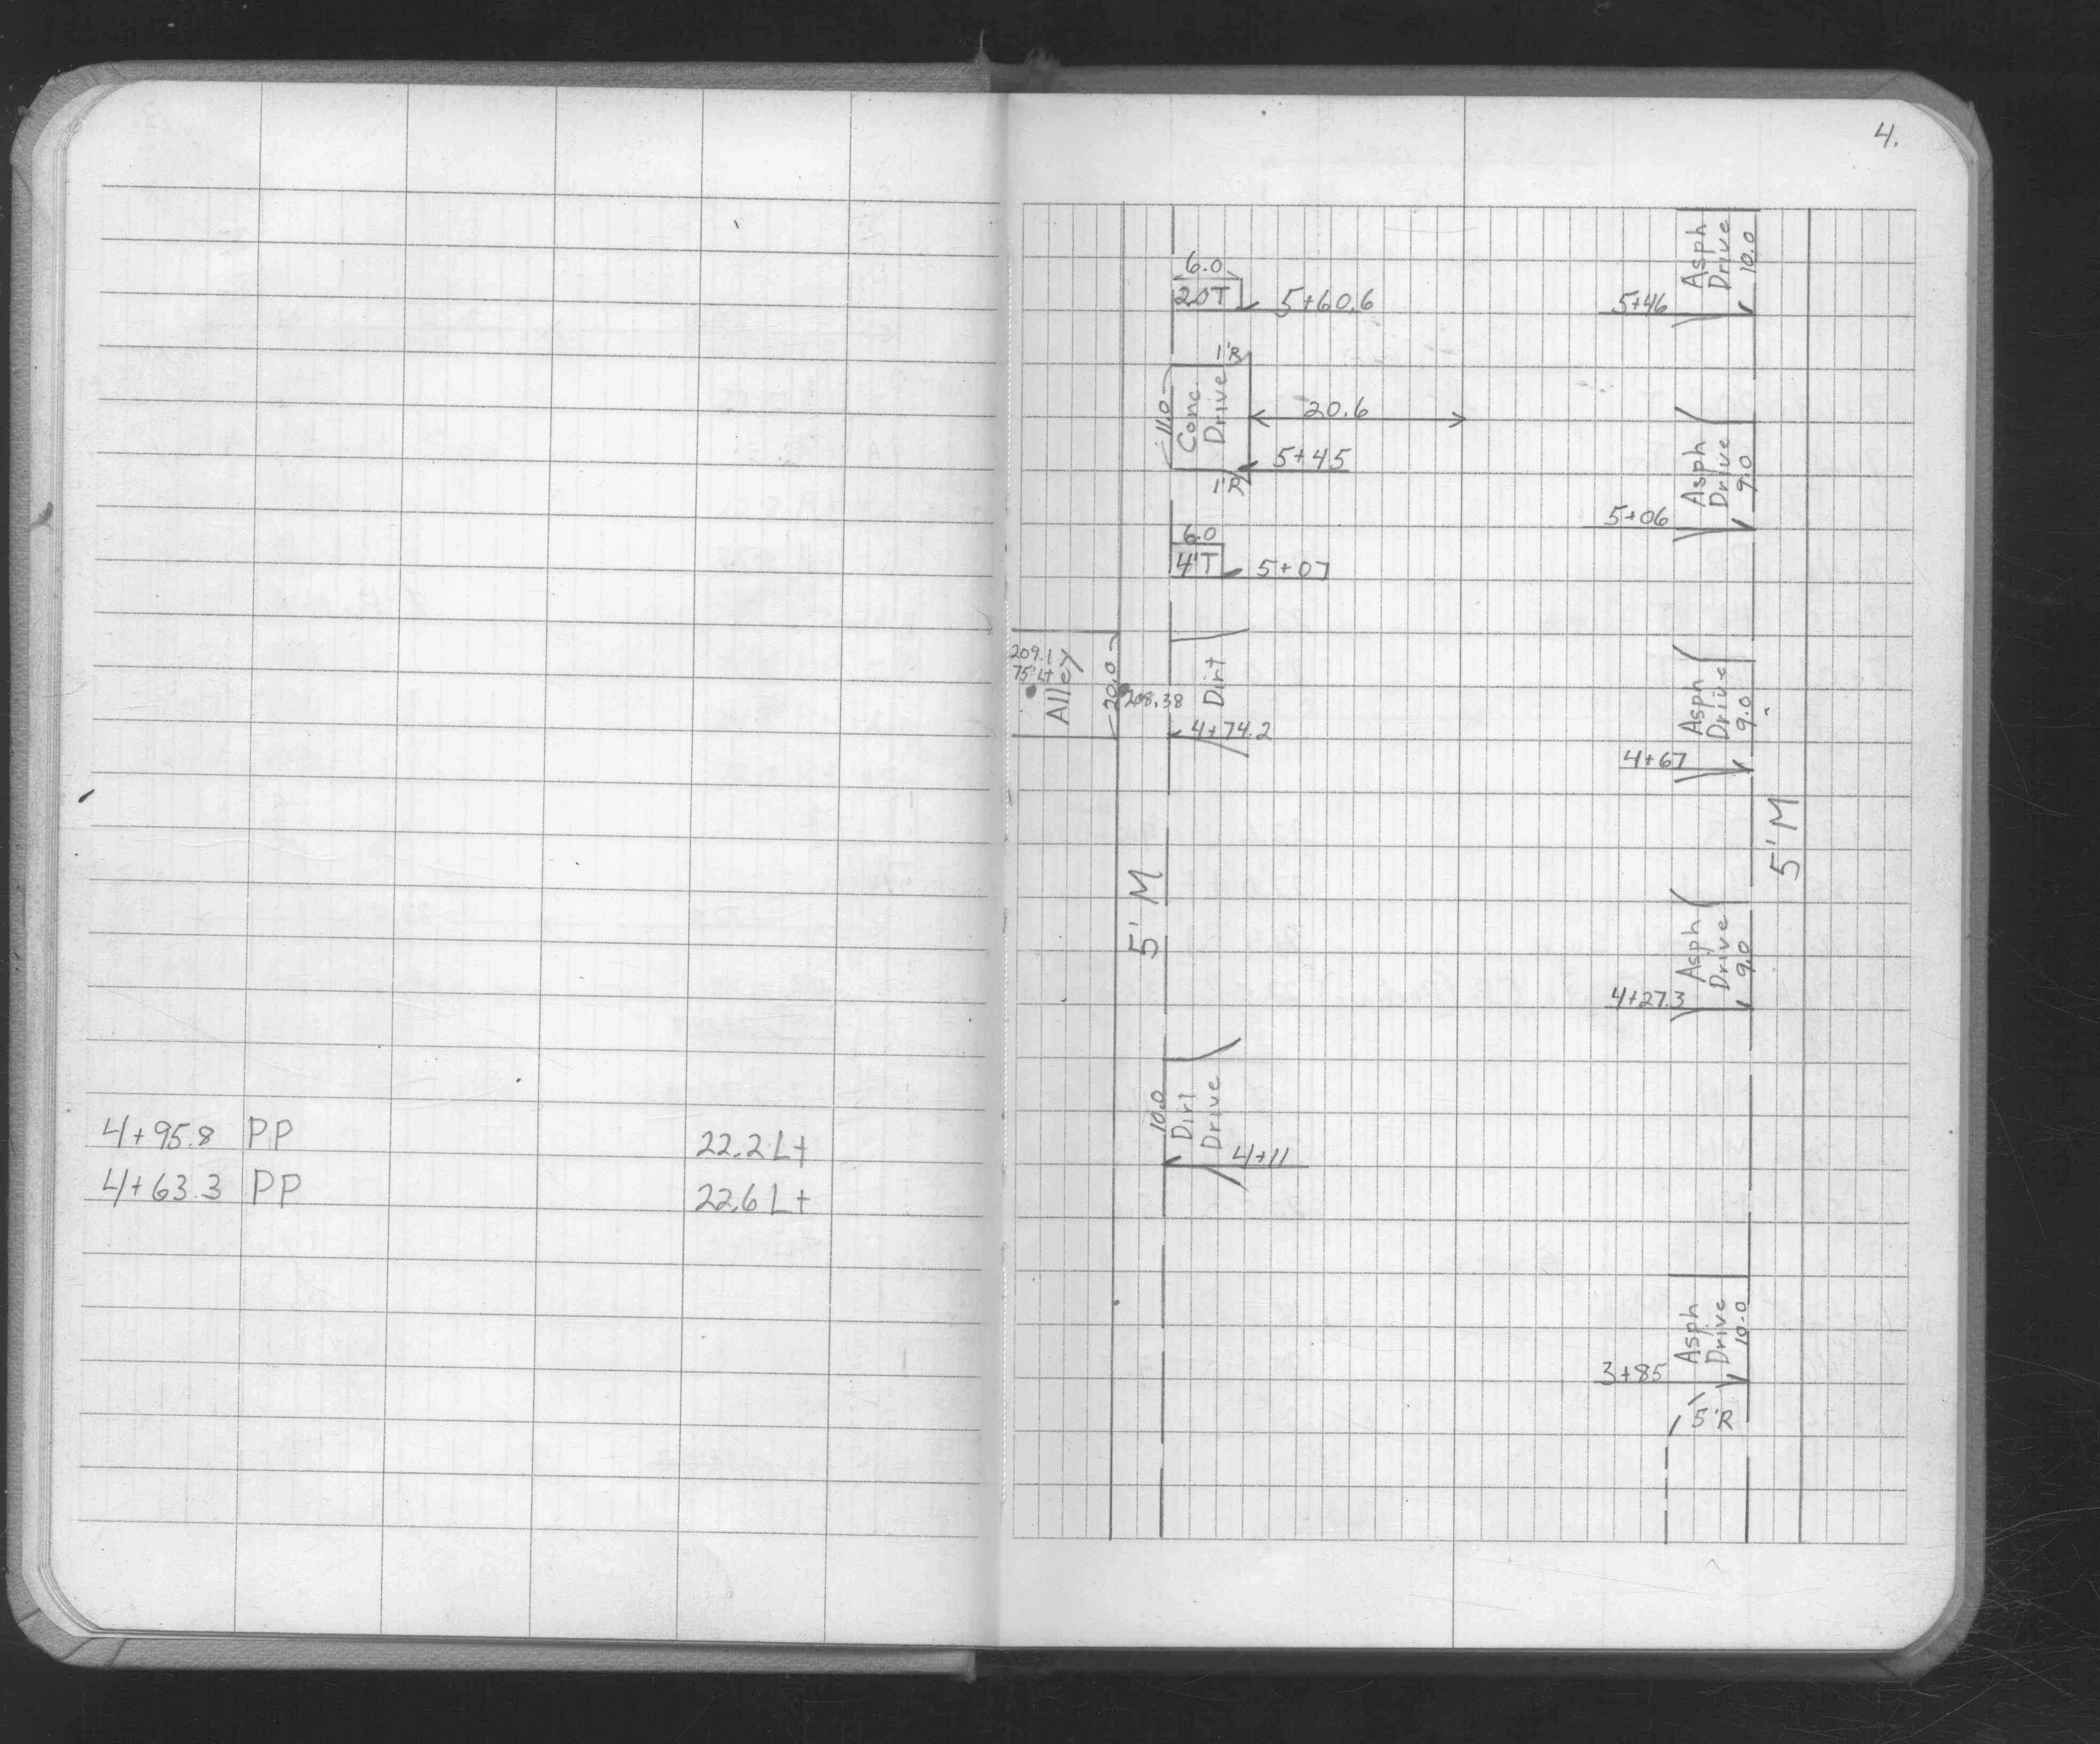 4+95.8 PP 22.2 Lt
4+63.3 PP 22.6 Lt
4.
6.0
2.0T
5+60.6
1'R
11.0
Conc.
Drive
20.6
5+45
1'R
6.0
4'T
5+07
209.1
75' Lt
Alley
20.0
208.38
Dirt
4+74.2
5' M
10.0
Dirt
Drive
4+11
Asph
Drive
10.0
5+46
Asph
Drive
9.0
5+06
Asph
Drive
9.0
4+67
5' M
Asph
Drive
9.0
4+27.3
Asph
Drive
10.0
3+85
5'R